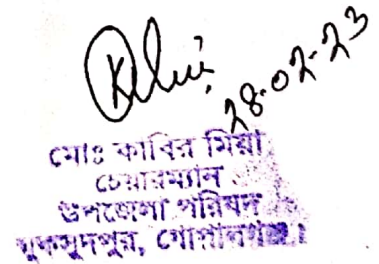 28-02-23
মোঃ কাবির মিয়া
চেয়ারম্যান
উপজেলা পরিষদ
মুকসুদপুর, গোপালগঞ্জ।